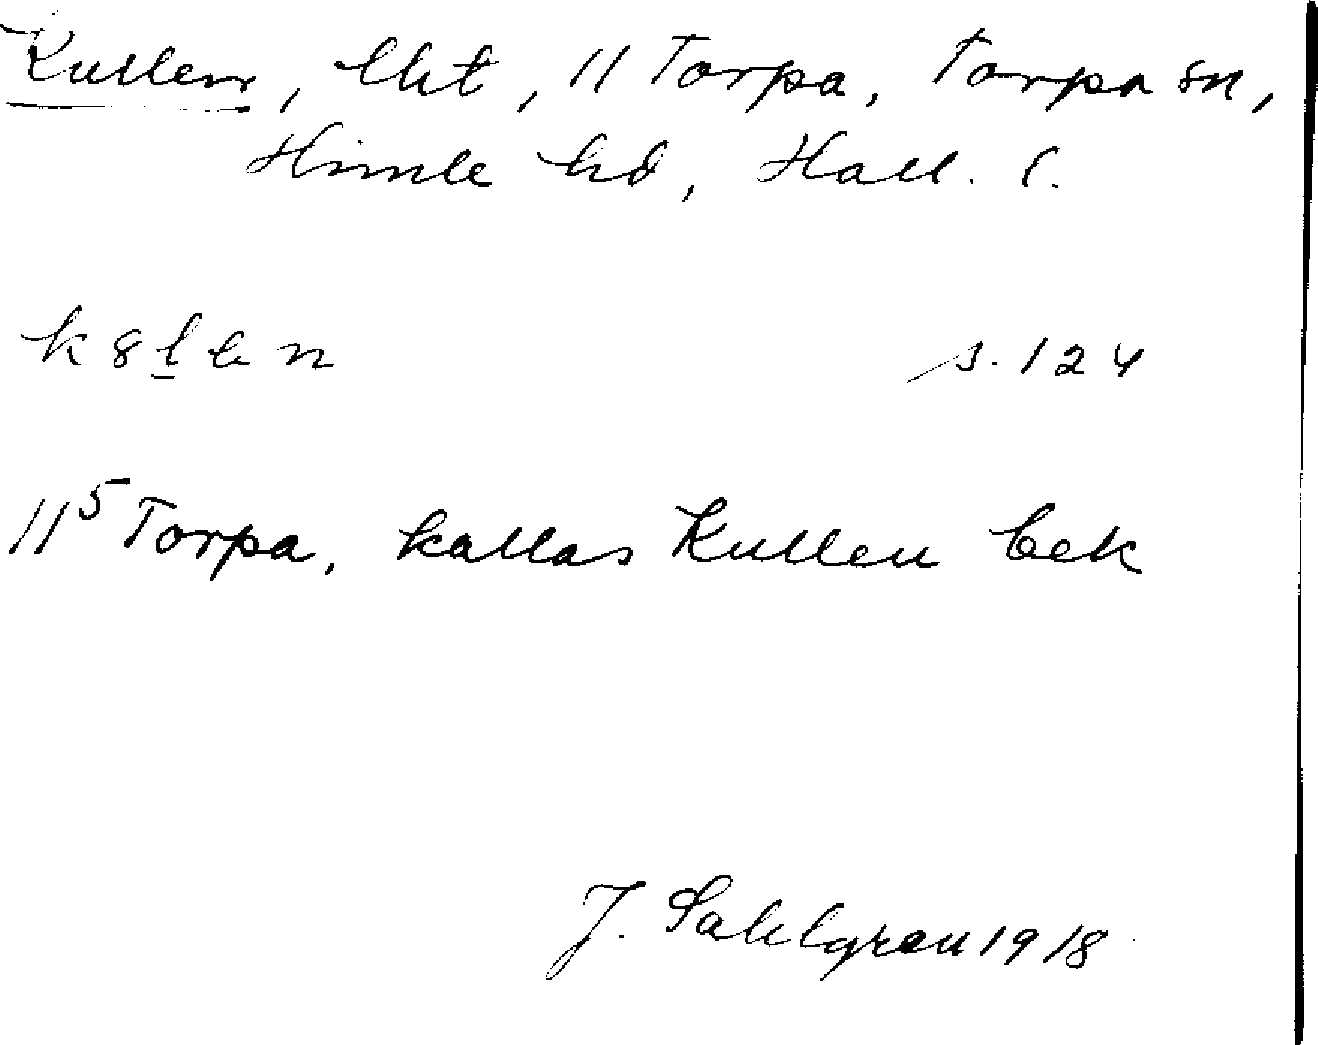 Kullen, lht, 11 Torpa, Torpa sn,
Himle hd, Hall. l.
k8len s. 124
11⁵ Torpa, kallas Kullen bek
J. Sahlgren 1918